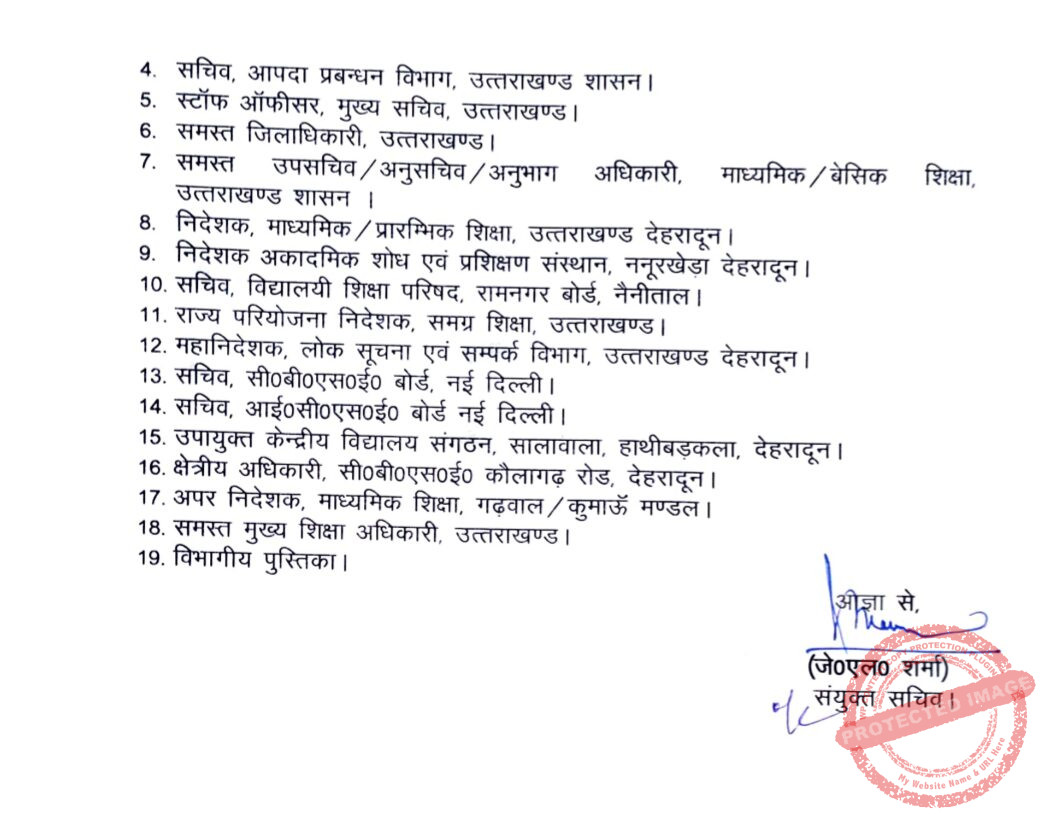 4. सचिव, आपदा प्रबन्धन विभाग, उत्तराखण्ड शासन।
5. स्टॉफ ऑफीसर, मुख्य सचिव, उत्तराखण्ड।
6. समस्त जिलाधिकारी, उत्तराखण्ड।
7. समस्त उपसचिव/अनुसचिव/अनुभाग अधिकारी, माध्यमिक/बेसिक शिक्षा,
उत्तराखण्ड शासन ।
8. निदेशक, माध्यमिक/प्रारम्भिक शिक्षा, उत्तराखण्ड देहरादून।
9. निदेशक अकादमिक शोध एवं प्रशिक्षण संस्थान, ननूरखेड़ा देहरादून।
10. सचिव, विद्यालयी शिक्षा परिषद, रामनगर बोर्ड, नैनीताल।
11. राज्य परियोजना निदेशक, समग्र शिक्षा, उत्तराखण्ड।
12. महानिदेशक, लोक सूचना एवं सम्पर्क विभाग, उत्तराखण्ड देहरादून।
13. सचिव, सी0बी0एस0ई0 बोर्ड, नई दिल्ली।
14. सचिव, आई0सी0एस0ई0 बोर्ड नई दिल्ली।
15. उपायुक्त केन्द्रीय विद्यालय संगठन, सालावाला, हाथीबड़कला, देहरादून।
16. क्षेत्रीय अधिकारी, सी0बी0एस0ई0 कौलागढ़ रोड, देहरादून।
17. अपर निदेशक, माध्यमिक शिक्षा, गढ़वाल/कुमाऊॅ मण्डल।
18. समस्त मुख्य शिक्षा अधिकारी, उत्तराखण्ड।
19. विभागीय पुस्तिका।
आज्ञा से,
(जे0एल0 शर्मा)
संयुक्त सचिव।
COPY PROTECTION PLUGIN
PROTECTED IMAGE
My Website Name & URL Here